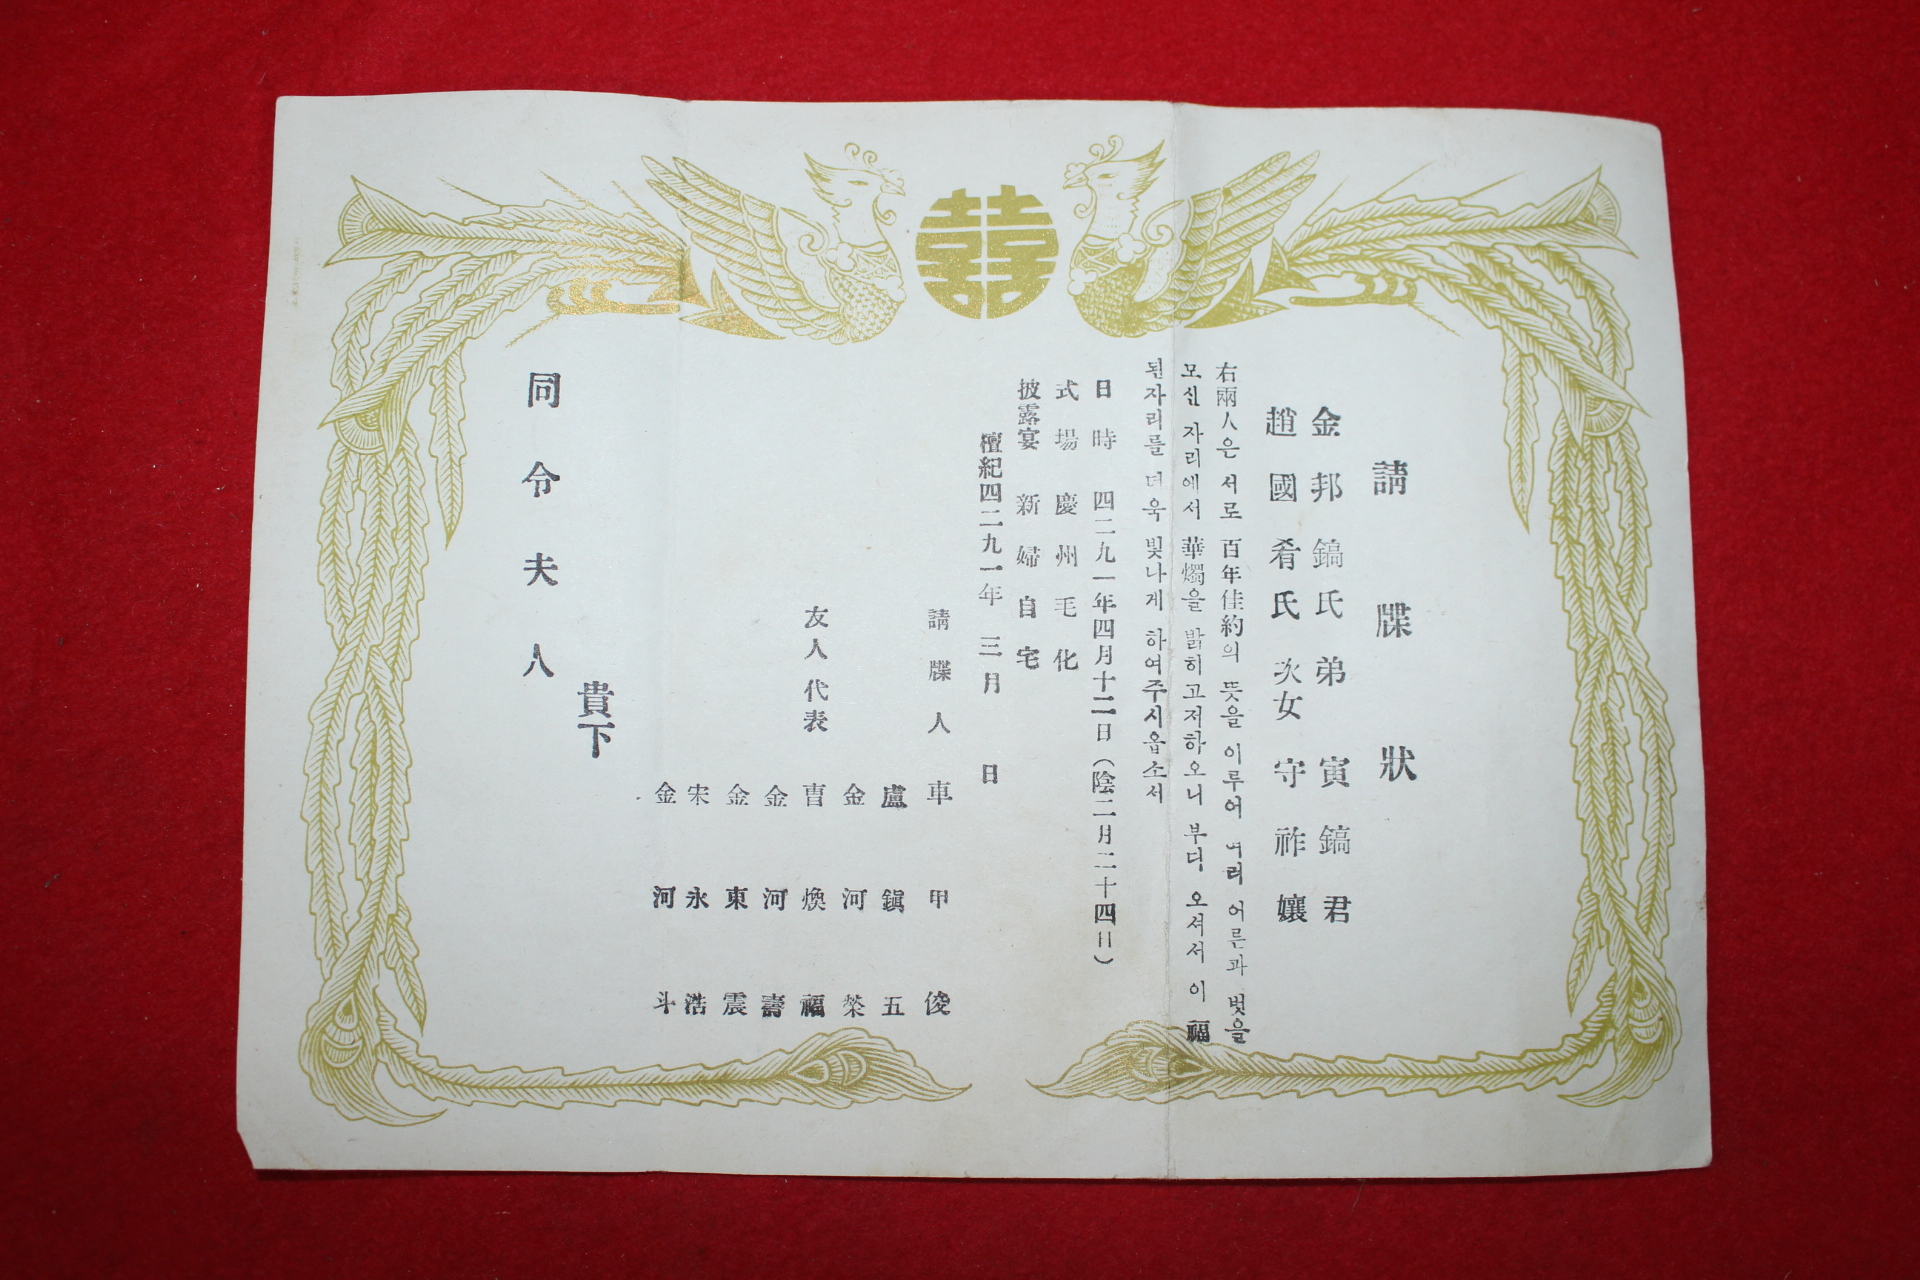 囍
請牒狀
金邦鎬氏弟 寅鎬君
趙國肴氏次女 守祚孃
右兩人은 서로 百年佳約의 뜻을 이루어 여러 어른과 벗을
모신 자리에서 華燭을 밝히고저하오니 부디 오셔서 이 福
된자리를 더욱 빛나게 하여주시옵소서
日時 四二九一年四月十二日(陰二月二十四日)
式場 慶州毛化
披露宴 新婦自宅
檀紀四二九一年 三月 日
請牒人 車甲俊
盧鎭五
金河榮
友人代表 曺煥福
金河壽
金東震
宋永浩
金河斗
貴下
同令夫人